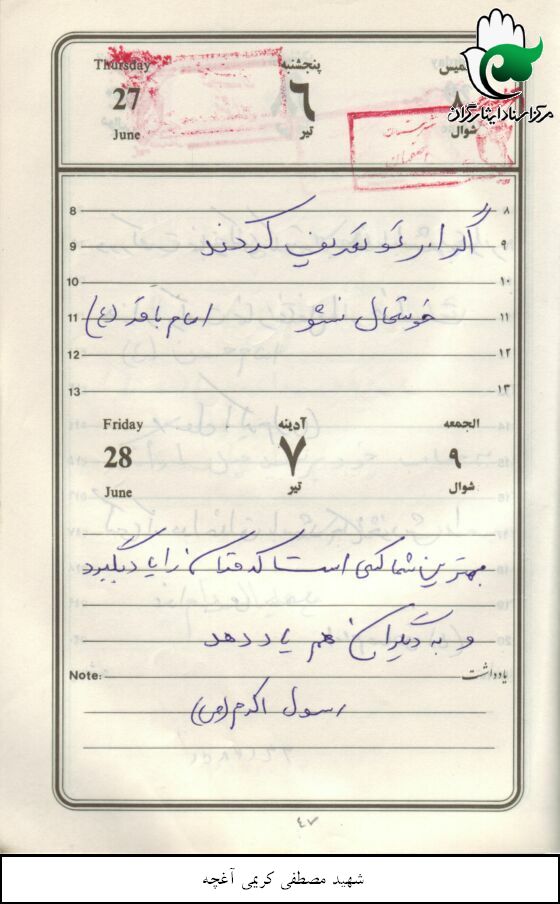 مرکز اسناد ایثارگران
Thursday پنجشنبه خمیس
27 ۶ ۸
June تیر شوال
شهرستان
8 ۸
اگر از تو تعریف کردند
9 ۹
10 ۱۰
خوشحال نشو امام باقر (ع)
11 ۱۱
12 ۱۲
13 ۱۳
Friday آدینه الجمعه
28 ۷ ۹
June تیر شوال
بهترین شما کسی است که قرآن را یاد بگیرد
و به دیگران هم یاد دهد
Note: یادداشت
رسول اکرم (ص)
۴۷
شهید مصطفی کریمی آغچه